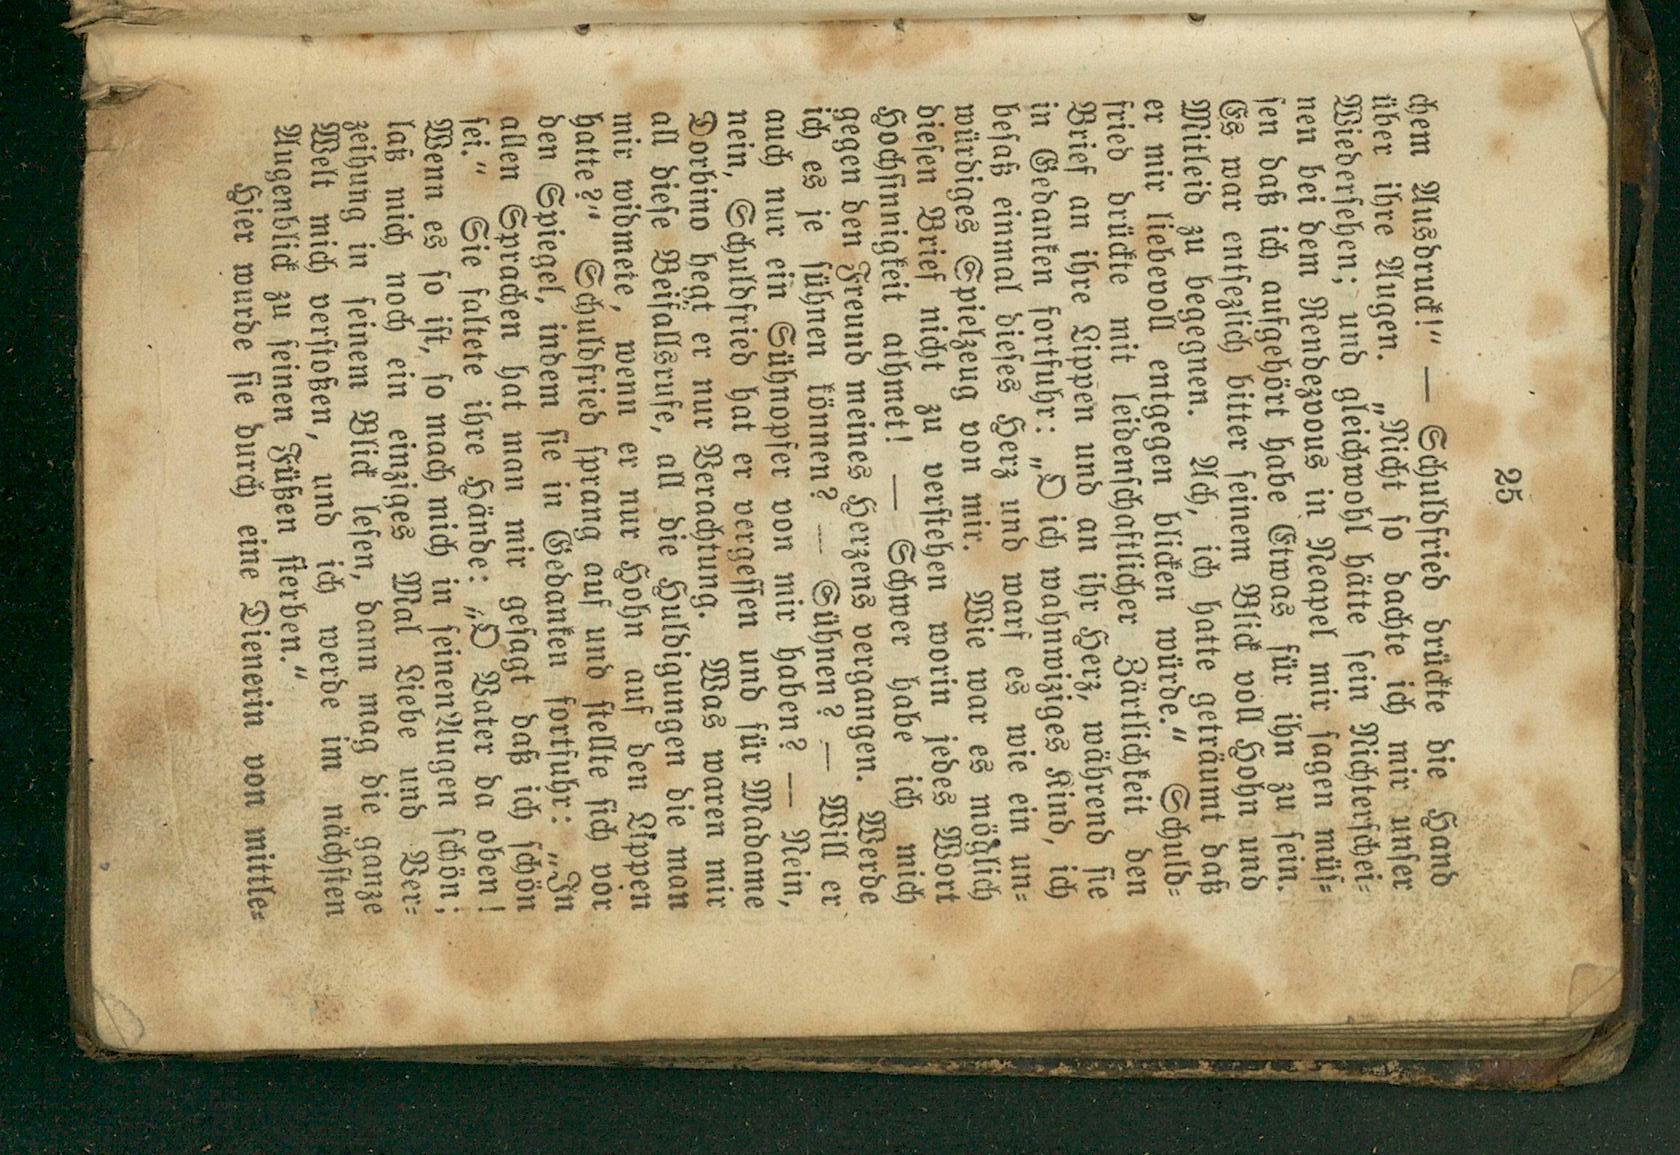 25
chem Ausdruck!“ — Schuldfried drückte die Hand
über ihre Augen. „Nicht so dachte ich mir unser
Wiedersehen; und gleichwohl hätte sein Nichterschei=
nen bei dem Rendezvous in Neapel mir sagen müs=
sen daß ich aufgehört habe Etwas für ihn zu sein.
Es war entsezlich bitter seinem Blick voll Hohn und
Mitleid zu begegnen. Ach, ich hatte geträumt daß
er mir liebevoll entgegen blicken würde.“ Schuld=
fried drückte mit leidenschaftlicher Zärtlichkeit den
Brief an ihre Lippen und an ihr Herz, während sie
in Gedanken fortfuhr: „O ich wahnwiziges Kind, ich
besaß einmal dieses Herz und warf es wie ein un=
würdiges Spielzeug von mir. Wie war es möglich
diesen Brief nicht zu verstehen worin jedes Wort
Hochsinnigkeit athmet! — Schwer habe ich mich
gegen den Freund meines Herzens vergangen. Werde
ich es je sühnen können? — Sühnen? — Will er
auch nur ein Sühnopfer von mir haben? — Nein,
nein, Schuldfried hat er vergessen und für Madame
Dorbino hegt er nur Verachtung. Was waren mir
all diese Beifallsrufe, all die Huldigungen die man
mir widmete, wenn er nur Hohn auf den Lippen
hatte?“ Schuldfried sprang auf und stellte sich vor
den Spiegel, indem sie in Gedanken fortfuhr: „In
allen Sprachen hat man mir gesagt daß ich schön
sei.“ Sie faltete ihre Hände: „O Vater da oben!
Wenn es so ist, so mach mich in seinen Augen schön;
laß mich noch ein einziges Mal Liebe und Ver=
zeihung in seinem Blick lesen, dann mag die ganze
Welt mich verstoßen, und ich werde im nächsten
Augenblick zu seinen Füßen sterben.“
Hier wurde sie durch eine Dienerin von mittle=